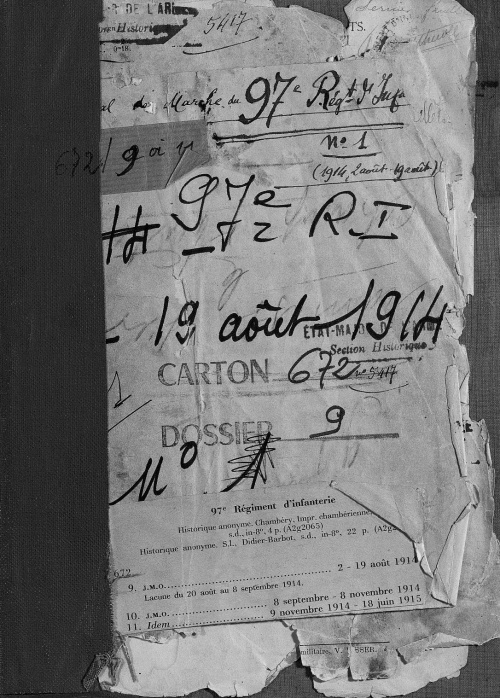 DE L'AR
Histori
5417
TS.
de Marche du 97e Régt d'Infie
672/9 à 11
No 1
(1914, 2 août-19 août)
97e R.I
19 août 1914
ÉTAT-MAJOR DE
Section Historique
CARTON 672
5417
DOSSIER 9
No 1
97e Régiment d'infanterie
Historique anonyme. Chambéry, Impr. chambérienne,
s.d., in-8°, 4 p. (A2g2065)
Historique anonyme. S.l., Didier-Barbot, s.d., in-8°, 22 p. (A2g2
672
9. J.M.O. 2 - 19 août 1914
Lacune du 20 août au 8 septembre 1914.
10. J.M.O. 8 septembre - 8 novembre 1914
11. Idem 9 novembre 1914 - 18 juin 1915
militaire, V.
SSER.